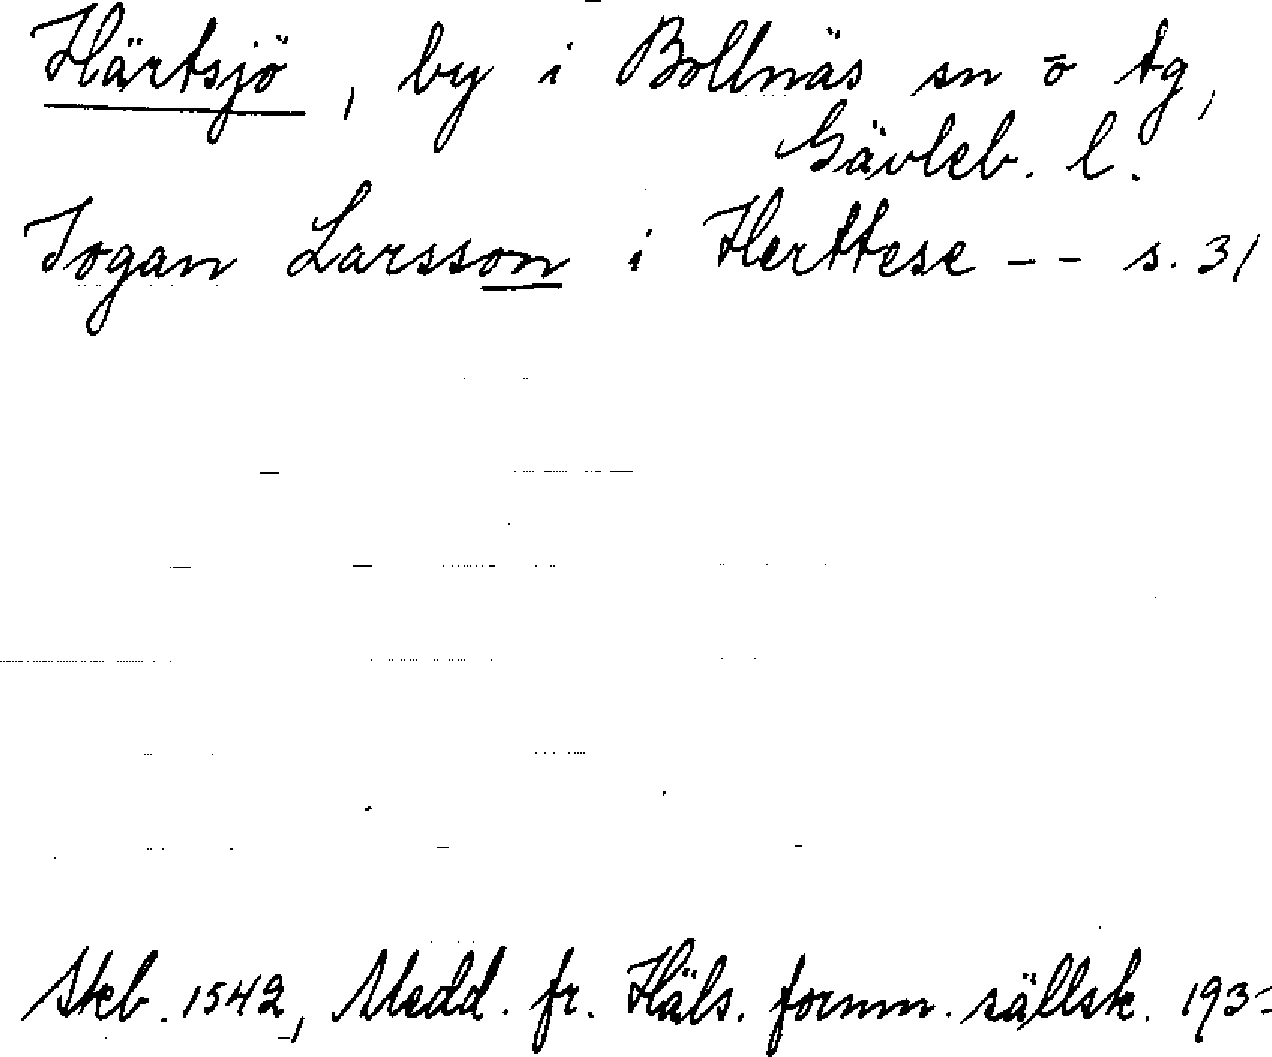 Härtsjö, by i Bollnäs sn o tg,
Gävleb. l.
Jogan Larsson i Herttese -- s. 31
Skb. 1542, Medd. fr. Häls. fornm. sällsk. 193-